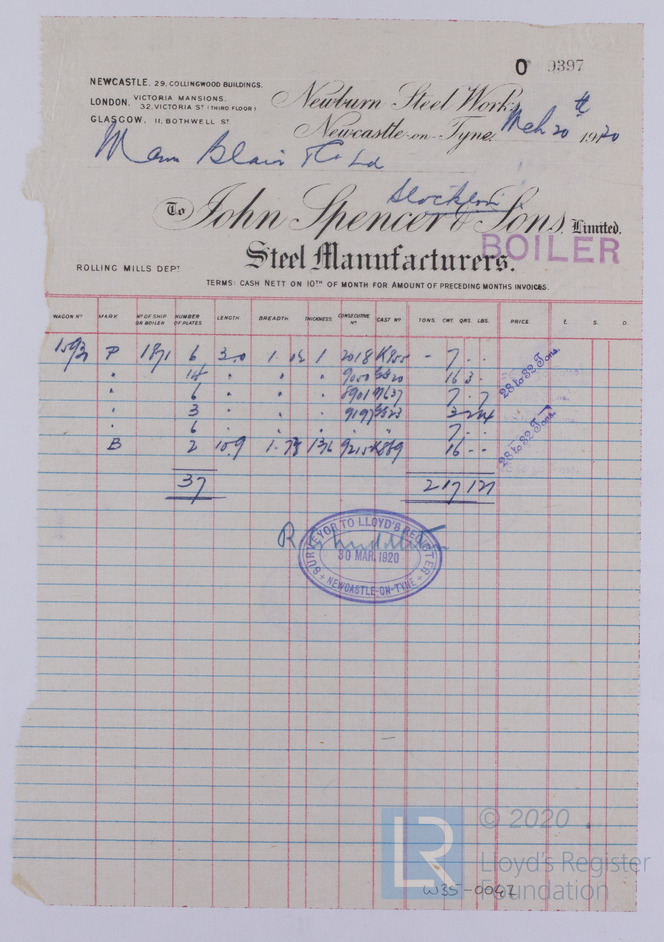 O 9397
NEWCASTLE. 29, COLLINGWOOD BUILDINGS.
LONDON. VICTORIA MANSIONS. 32, VICTORIA ST (THIRD FLOOR)
GLASGOW, 11, BOTHWELL ST
Newburn Steel Works,
Newcastle-on-Tyne, Mch 20th 1920
Mann Blair & Co Ld
Stockton
To John Spencer & Sons, Limited.
BOILER
Steel Manufacturers.
ROLLING MILLS DEPT
TERMS: CASH NETT ON 10TH OF MONTH FOR AMOUNT OF PRECEDING MONTHS INVOICES.
WAGON NO MARK NO OF SHIP OR BOILER NUMBER OF PLATES LENGTH BREADTH THICKNESS CONSECUTIVE NO CAST NO TONS. CWT. QRS. LBS. PRICE. £. S. D.
P 1871 6 3.0 1 2018 - 7 - -
14 16 3 -
6 7 - 7
3
6 7 - -
B 2 10.9 16 - -
28 to 32 Tons.
28 to 32 Tons.
37
SURVEYOR TO LLOYD'S REGISTER
30 MAR. 1920
NEWCASTLE-ON-TYNE
LR
© 2020
Lloyd's Register
Foundation
W35-0042